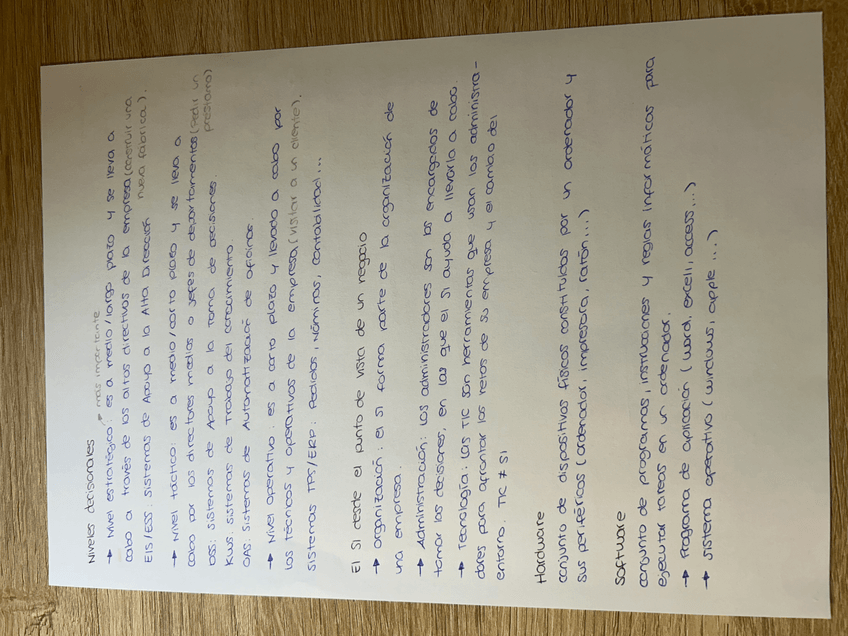 Niveles decisionales
→ Nivel estratégico: es a medio/largo plazo y se lleva a → más importante
cabo a través de los altos directivos de la empresa (construir una
EIS/ESS: Sistemas de Apoyo a la Alta Dirección nueva fabrica).
→ Nivel táctico: es a medio/corto plazo y se lleva a
cabo por los directores medios o jefes de departamentos (Pedir un
DSS: Sistemas de Apoyo a la Toma de decisiones. prestamo)
KWS: Sistemas de Trabajo del conocimiento.
OAS: Sistemas de Automatización de oficinas.
→ Nivel operativo: es a corto plazo y llevado a cabo por
los técnicos y operativos de la empresa. (visitar a un cliente).
Sistemas TPS/ERP: Pedidos, Nóminas, contabilidad...
El SI desde el punto de vista de un negocio
→ Organización: el SI forma parte de la organización de
una empresa.
→ Administración: Los administradores son los encargados de
tomar las decisiones, en las que el SI ayuda a llevarla a cabo.
→ Tecnología: Las TIC son herramientas que usan los administra-
dores para afrontar los retos de su empresa y el cambio del
entorno. TIC ≠ SI
Hardware
conjunto de dispositivos físicos constituidos por un ordenador y
sus periféricos (ordenador, impresora, ratón...)
Software
conjunto de programas, instrucciones y reglas informáticas para
ejecutar tareas en un ordenador.
→ Programa de aplicación (word, excell, access,...)
→ Sistema operativo (windows, apple ...)